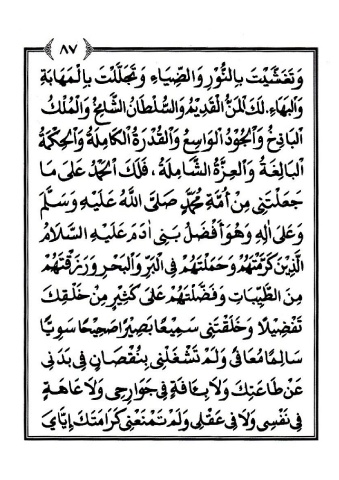 ٨٧
وَتَغَشَّيْتَ بِالنُّوْرِ وَالضِّيَاءِ وَتَجَلَّلْتَ بِالْمَهَابَةِ
وَالْبَهَاءِ. لَكَ الْمَنُّ الْقَدِيْمُ وَالسُّلْطَانُ الشَّامِخُ وَالْمُلْكُ
الْبَاذِخُ وَالْجُوْدُ الْوَاسِعُ وَالْقُدْرَةُ الْكَامِلَةُ وَالْحِكْمَةُ
الْبَالِغَةُ وَالْعِزَّةُ الشَّامِلَةُ ، فَلَكَ الْحَمْدُ عَلَى مَا
جَعَلْتَنِى مِنْ اُمَّةِ مُحَمَّدٍ صَلَّى اللّٰهُ عَلَيْهِ وَسَلَّمَ
وَعَلَى اٰلِهِ وَهُوَ اَفْضَلُ بَنِى اٰدَمَ عَلَيْهِ السَّلَامُ
الَّذِيْنَ كَرَّمْتَهُمْ وَحَمَلْتَهُمْ فِى الْبَرِّ وَالْبَحْرِ وَرَزَقْتَهُمْ
مِنَ الطَّيِّبَاتِ وَفَضَّلْتَهُمْ عَلَى كَثِيْرٍ مِنْ خَلْقِكَ
تَفْضِيْلًا وَخَلَقْتَنِى سَمِيْعًا بَصِيْرًا صَحِيْحًا سَوِيًّا
سَالِمًا مُعَافًى وَلَمْ تَشْغَلْنِى بِنُقْصَانٍ فِى بَدَنِى
عَنْ طَاعَتِكَ وَلَا بِآفَةٍ فِى جَوَارِحِى وَلَا عَاهَةٍ
فِى نَفْسِى وَلَا فِى عَقْلِى وَلَمْ تَمْنَعْنِى كَرَامَتَكَ اِيَّايَ